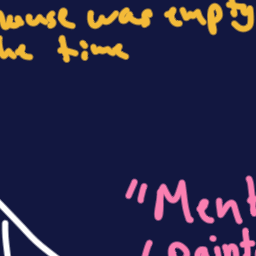 house was empty
the time
"Ment
(Paint